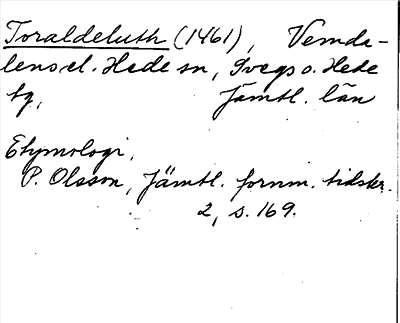 Toraldeluth (1461), Vemda-
lens el. Hede sn, Svegs o. Hede
tg, Jämtl. län
Etymologi,
P. Olsson, Jämtl. fornm. tidskr.
2, s. 169.